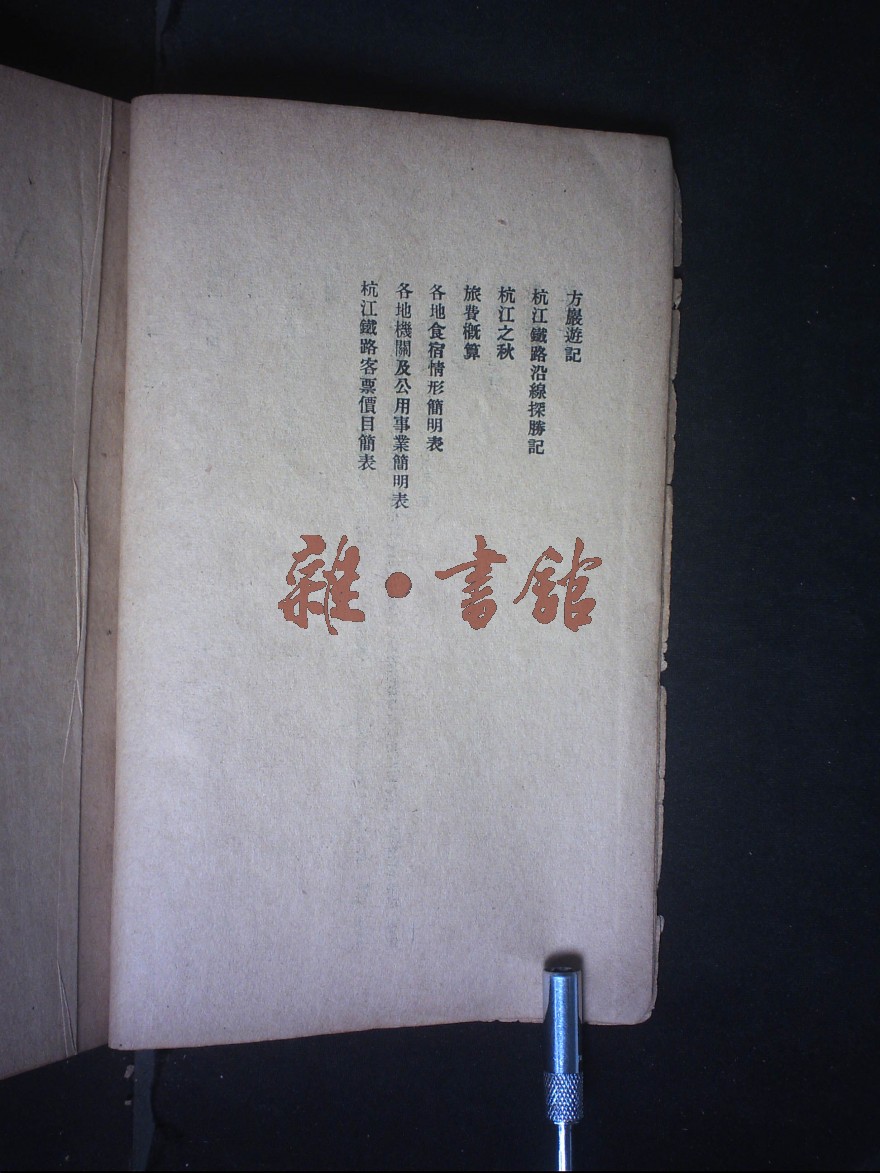 方巖遊記
杭江鐵路沿線探勝記
杭江之秋
旅費概算
各地食宿情形簡明表
各地機關及公用事業簡明表
杭江鐵路客票價目簡表
雜·書館